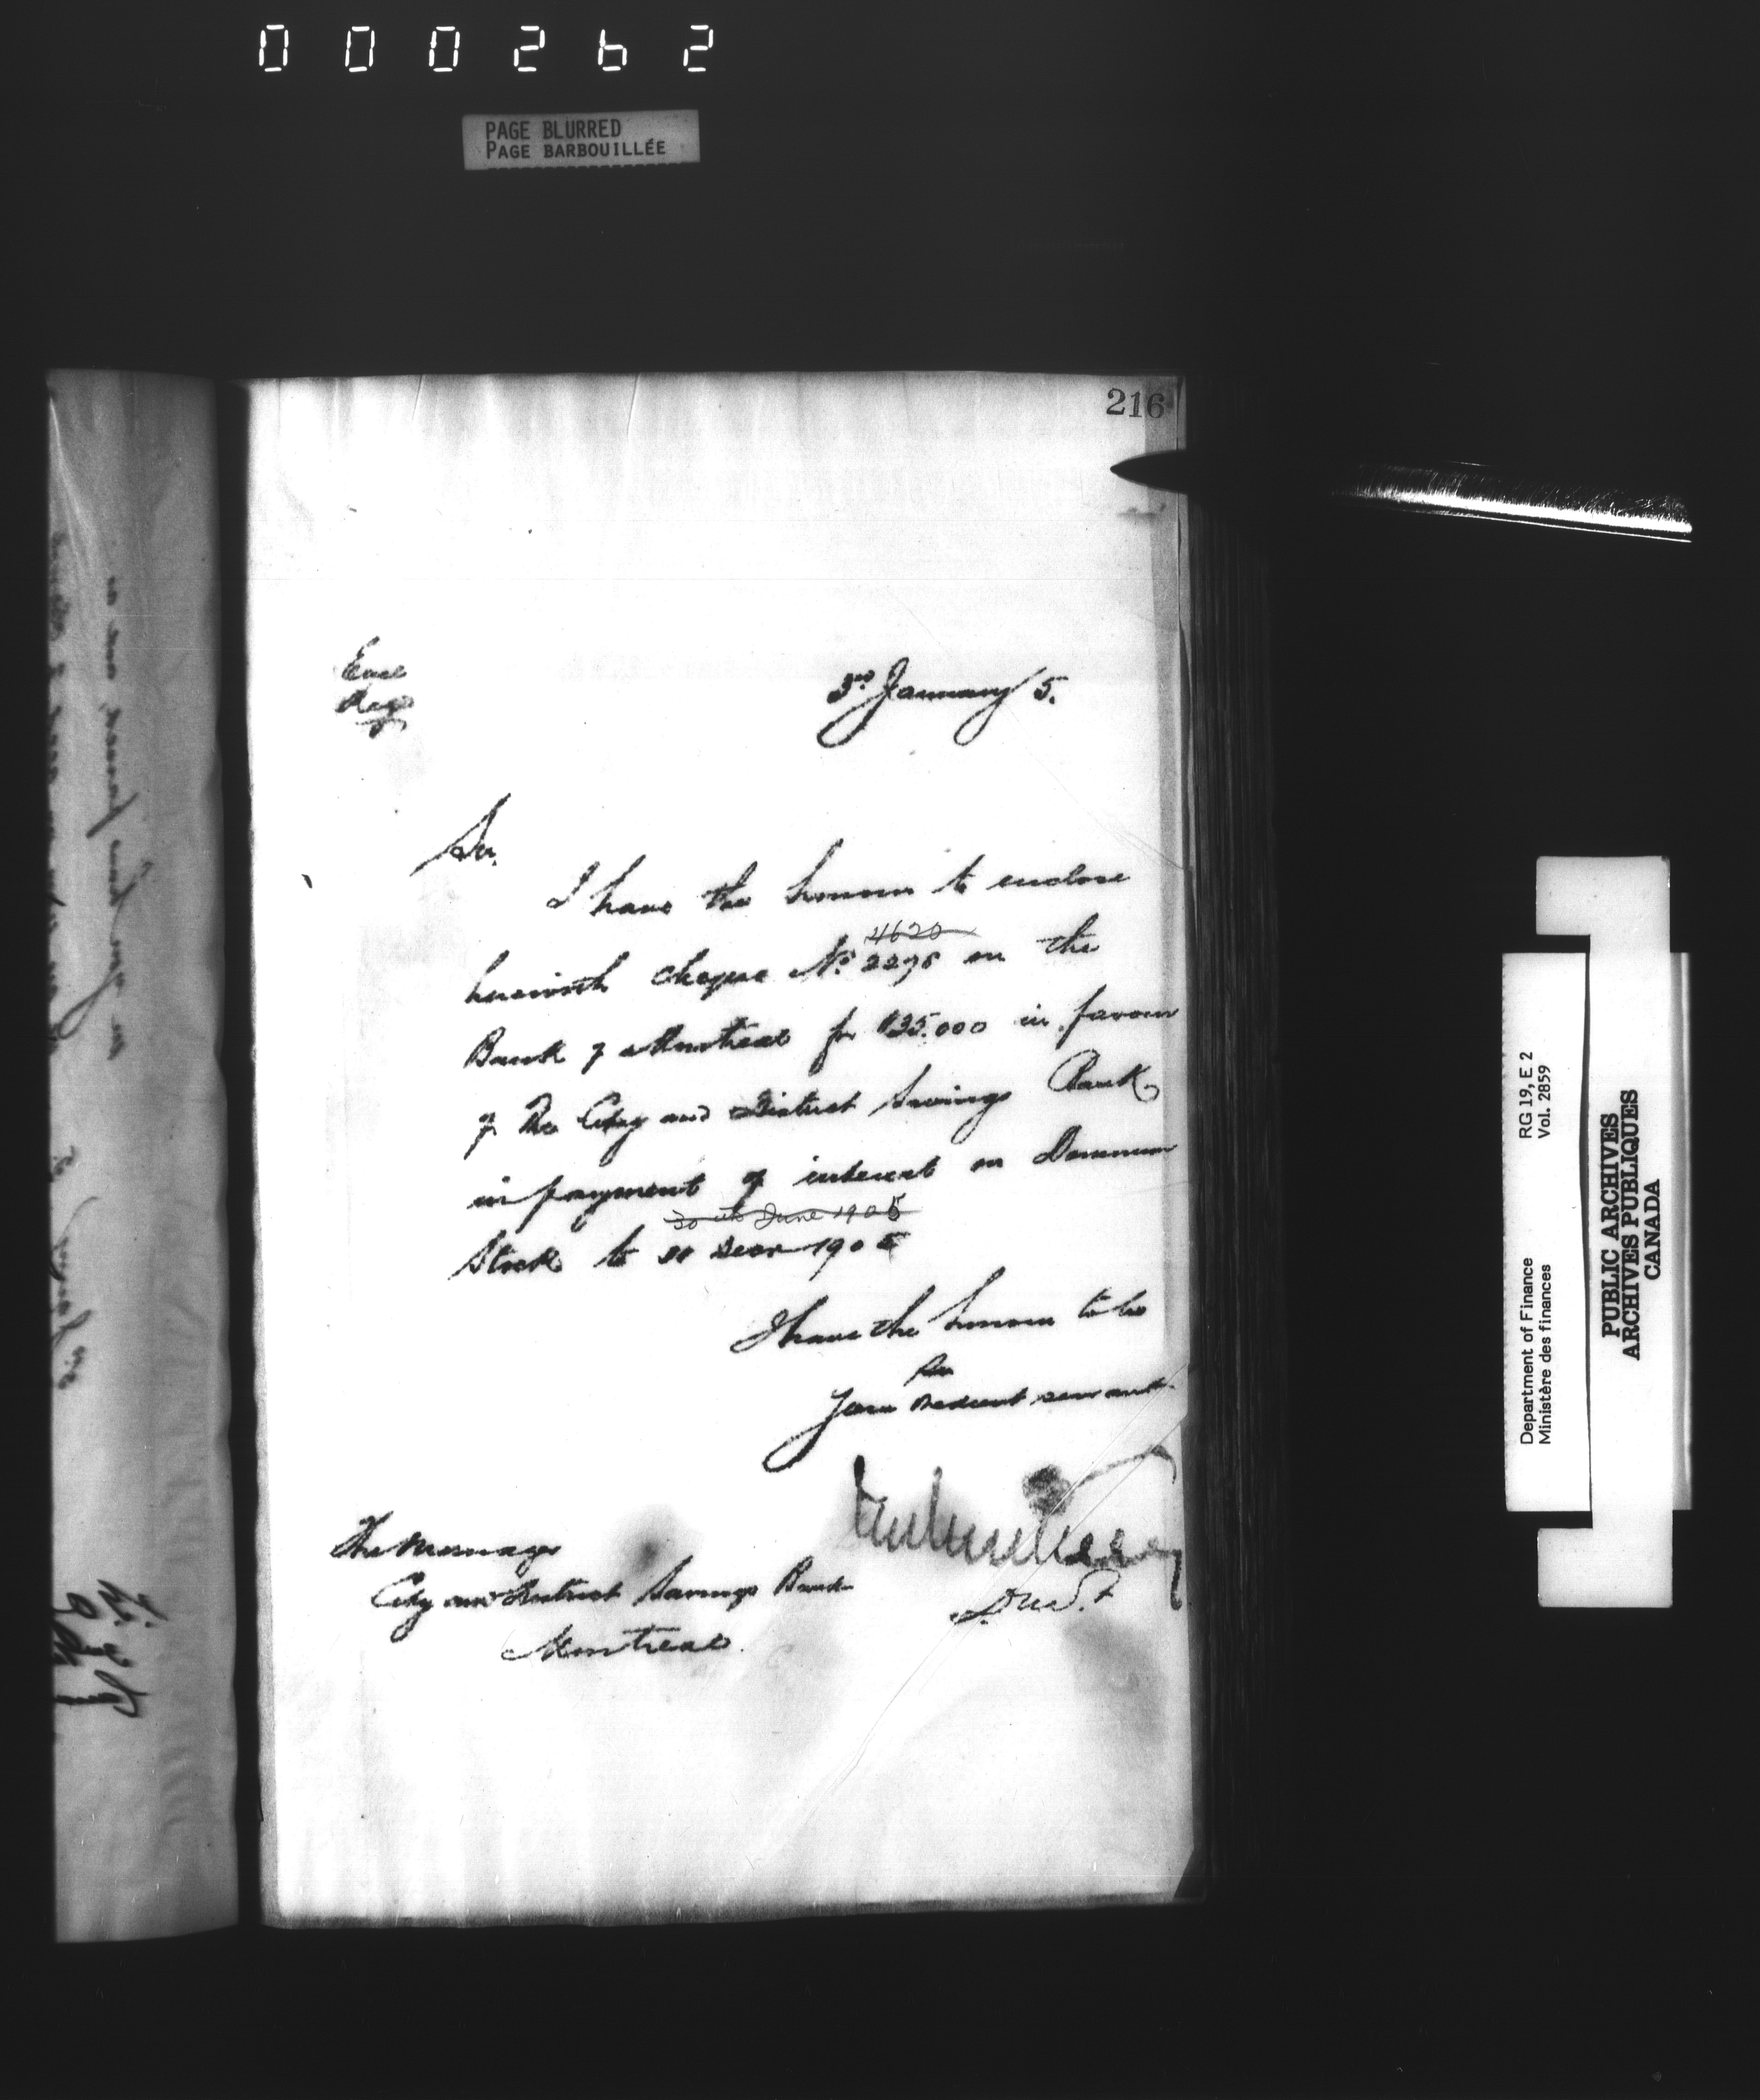 000262
PAGE BLURRED
PAGE BARBOUILLÉE
216
Encl
Reg
3rd January 5.
Sir,
I have the honour to enclose
4620
herewith cheque No. 2275 on the
Bank of Montreal for $35.000 in favour
of The City and District Savings Bank
in payment of interest on Dominion
30th June 1905
Stock to 31 Decr 190
I have the honour to be
Sir
Your obedient servant
The Manager
City and District Savings Bank
Montreal.
RG 19, E 2
Vol. 2859
Department of Finance
Ministère des finances
PUBLIC ARCHIVES
ARCHIVES PUBLIQUES
CANADA